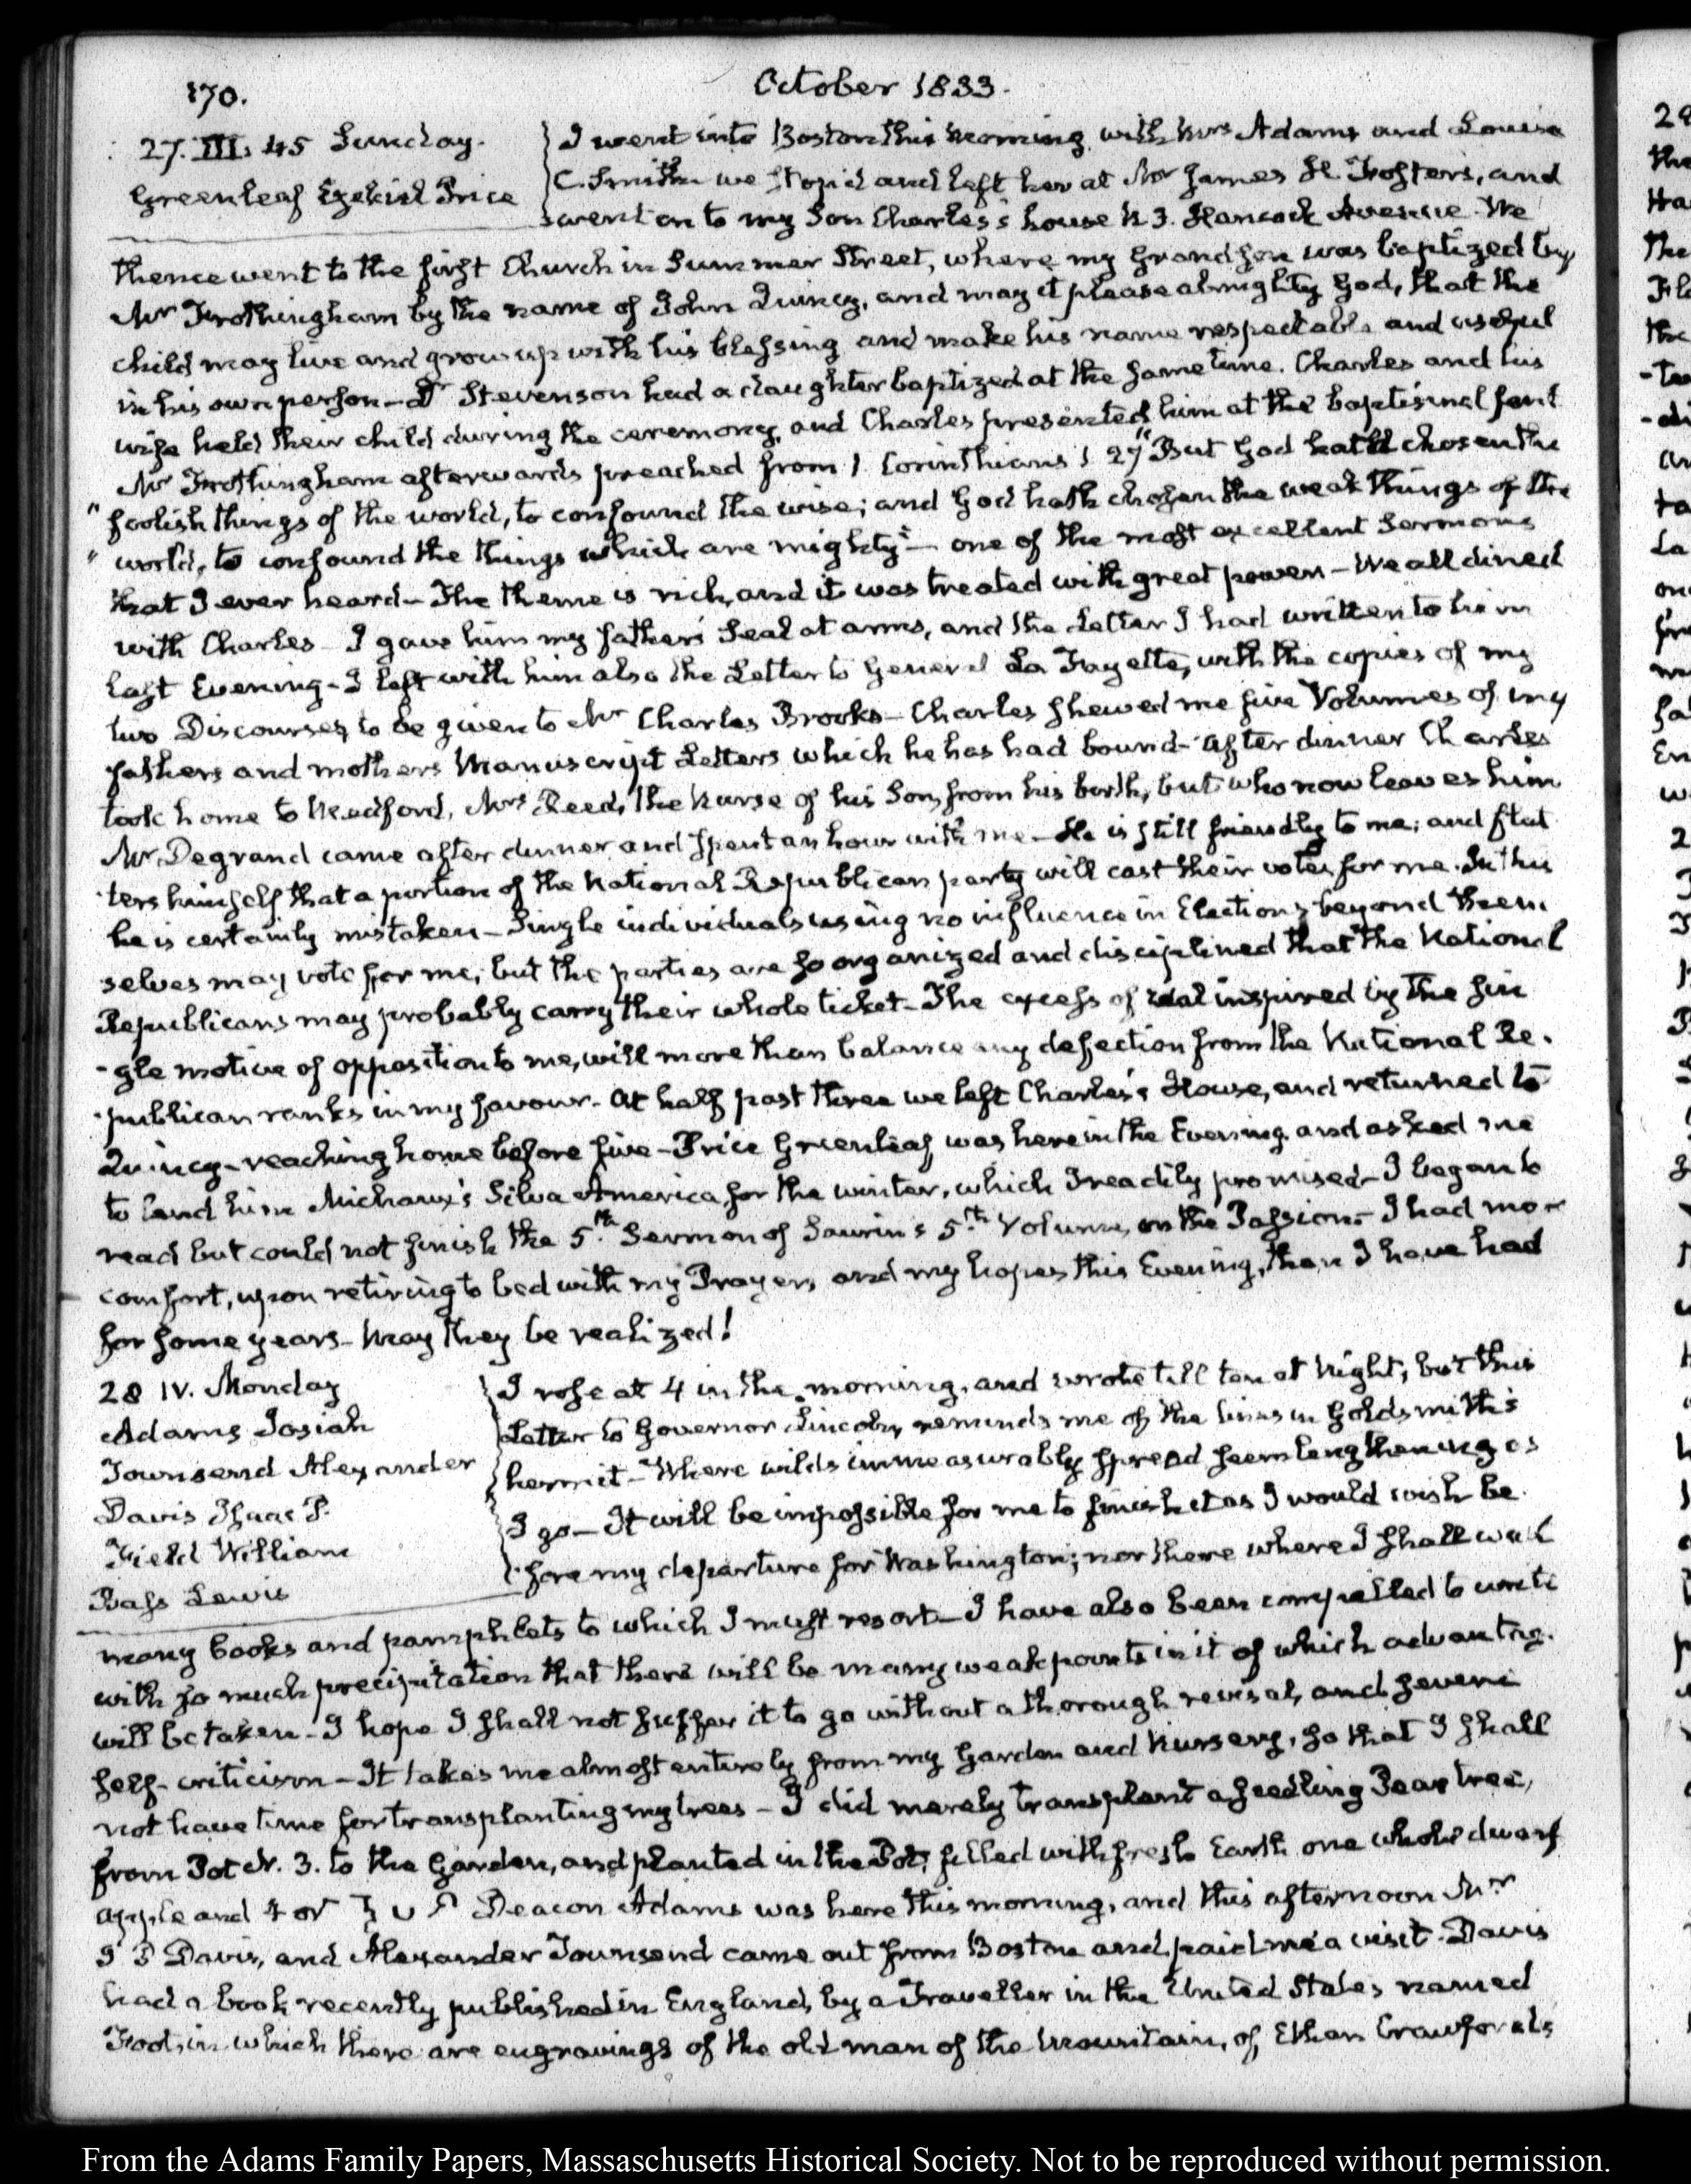 170.
October 1833.
27. III. 45 Sunday.
Greenleaf Ezekiel Price
I went into Boston this morning with Mrs Adams and Louisa
C. Smith we stopp'd and left her at Mr James H. Foster's, and
went on to my Son Charles's house N 3. Hancock Avenue. We
thence went to the first Church in Summer Street, where my Grandson was baptized by
Mr Frothingham by the name of John Quincy, and may it please almighty God, that the
child may live and grow up with his blessing and make his name respectable and useful
in his own person — Dr Stevenson had a daughter baptized at the same time. Charles and his
wife held their child during the ceremony, and Charles presented him at the baptismal font
Mr Frothingham afterwards preached from 1. Corinthians 1 27 "But God hath chosen the
" foolish things of the world, to confound the wise; and God hath chosen the weak things of the
" world, to confound the things which are mighty" — one of the most excellent Sermons
that I ever heard — The theme is rich, and it was treated with great power — We all dined
with Charles — I gave him my father's Seal at arms, and the Letter I had written to him
last Evening — I left with him also the Letter to General La Fayette, with the copies of my
two Discourses, to be given to Mr Charles Brooks — Charles shewed me five Volumes of my
fathers and mothers Manuscript Letters which he has had bound — After dinner Charles
took home to Medford, Mrs Reed, the Nurse of his Son, from his birth, but who now leaves him
Mr Degrand came after dinner and spent an hour with me — He is still friendly to me; and flat
-ters himself that a portion of the National Republican party will cast their votes for me. In this
he is certainly mistaken — Single individuals using no influence in Elections beyond them
selves may vote for me; but the parties are so organized and disciplined that the National
Republicans may probably carry their whole ticket — The excess of zeal inspired by the sin
-gle motive of opposition to me, will more than balance any defection from the National Re-
-publican ranks in my favour. At half past three we left Charles's House, and returned to
Quincy — reaching home before five — Price Greenleaf was here in the Evening and asked me
to lend him Michaux's Silva America for the winter, which I readily promised — I began to
read but could not finish the 5.th Sermon of Saurin's 5.th Volume, on the Passion — I had more
comfort, upon retiring to bed with my Prayers, and my hopes this Evening, than I have had
for some years — May they be realized!
28 IV. Monday
Adams Josiah
Townsend Alexander
Davis Isaac P.
Field William
Bass Lewis
I rose at 4 in the morning, and wrote till ten at Night, but this
Letter to Governor Lincoln, reminds me of the lines in Goldsmith's
hermit — Where wilds immeasurably spread seem lengthening as
I go — It will be impossible for me to finish it as I would wish be
-fore my departure for Washington; nor there where I shall want
many books and pamphlets to which I must resort — I have also been compelled to write
with so much precipitation that there will be many weak points in it of which advantage
will be taken — I hope I shall not suffer it to go without a thorough revisal, and severe
self-criticism — It takes me almost entirely from my Garden and Nursery, so that I shall
not have time for transplanting my trees — I did merely transplant a seedling Pear tree,
from Pot N. 3. to the Garden, and planted in the Pot, filled with fresh Earth one whole dwarf
apple and 4 of Deacon Adams was here this morning, and this afternoon Mr
I P Davis, and Alexander Townsend came out from Boston and paid me a visit. Davis
had a book recently published in England, by a Traveller in the United States named
in which there are engravings of the old man of the Mountain, of Ethan Crawford's
From the Adams Family Papers, Massachusetts Historical Society. Not to be reproduced without permission.